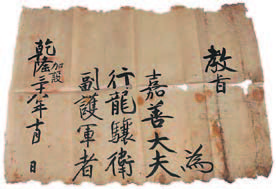 教旨
為
嘉善大夫
行龍驤衛
副護軍者
乾隆年月 日
加設